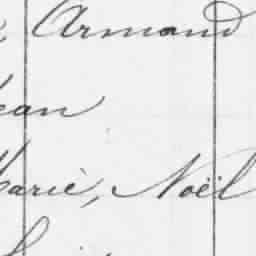 , Armand
ean
arie, Noël